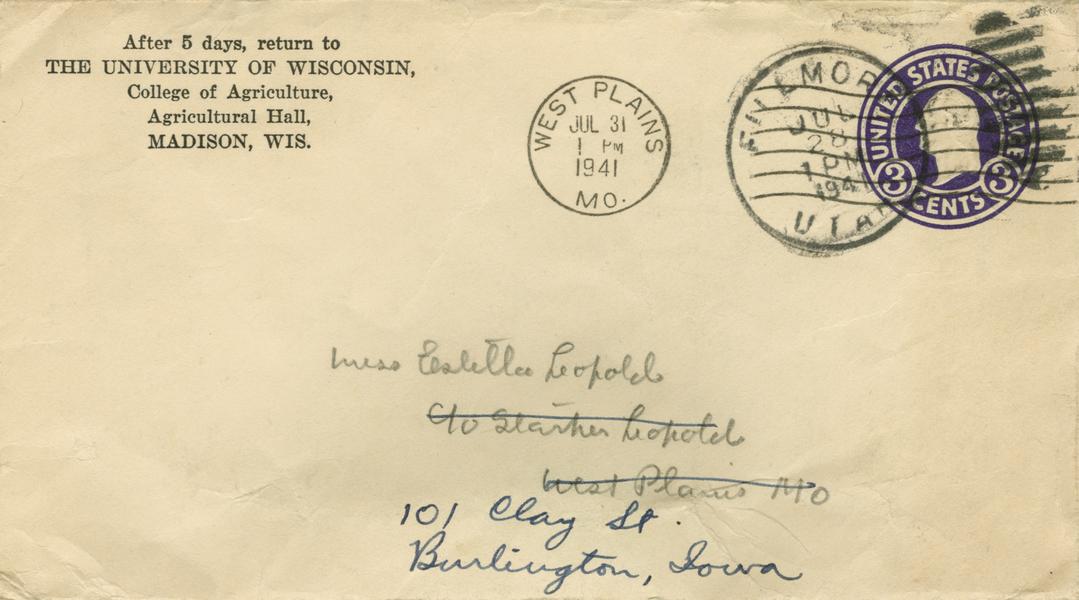 After 5 days, return to
THE UNIVERSITY OF WISCONSIN,
College of Agriculture,
Agricultural Hall,
MADISON, WIS.
WEST PLAINS
JUL 31
1 PM
1941
MO.
FILLMORE
JUL
28
1 PM
1941
UTAH
UNITED STATES POSTAGE
3 CENTS 3
Miss Estella Leopold
c/o Starker Leopold
West Plains MO
101 Clay St.
Burlington, Iowa